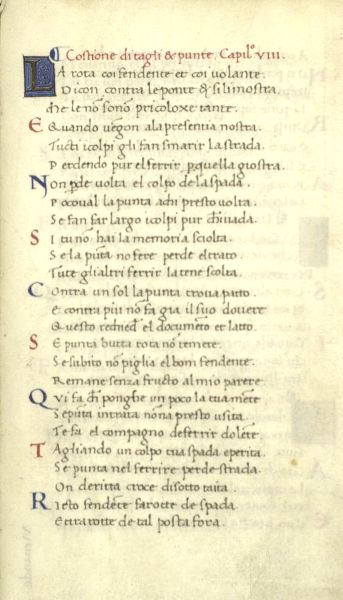 ¶ Costione di tagli & punte. Capil.º VIII.
LA rota coi fendente et coi volante.
Dicon contra le ponte & si li mostra.
che le nõ sonõ pricoloxe tante.
E Quando vẽgon ala presentia nostra.
Tucti icolpi gli fan smarir la strada.
Perdendo pur el ferrir p quella giostra.
Non pde volta el colpo de la spada.
Poco ual la punta achi presto volta.
Se fan far largo icolpi pur chi uada.
Si tu nõ hai la memoria sciolta.
Se la pũta nõ fere perde el trato.
Tute gli altri ferrir la tene scolta.
Contra un sol la punta trova patto.
E contra piu nõ fa gia il suo douere
Questo rechiede el documẽto et latto.
Se punta butta rota nõ temere.
Se subito nõ piglia el bom fendente.
Remane senza fructo al mio parere.
Qui fa chi ponghe un poco la tua mẽte
Se pũta intrata nõ na presto usita.
Te fa el compagno de ferrir dolẽte.
Tagliando un colpo tua spada e perita.
Se punta nel ferrire perde strada.
On deritta croce di sotto taita.
Rieto fendẽte fa rotte de spada.
E tra rotte de tal posta fora.